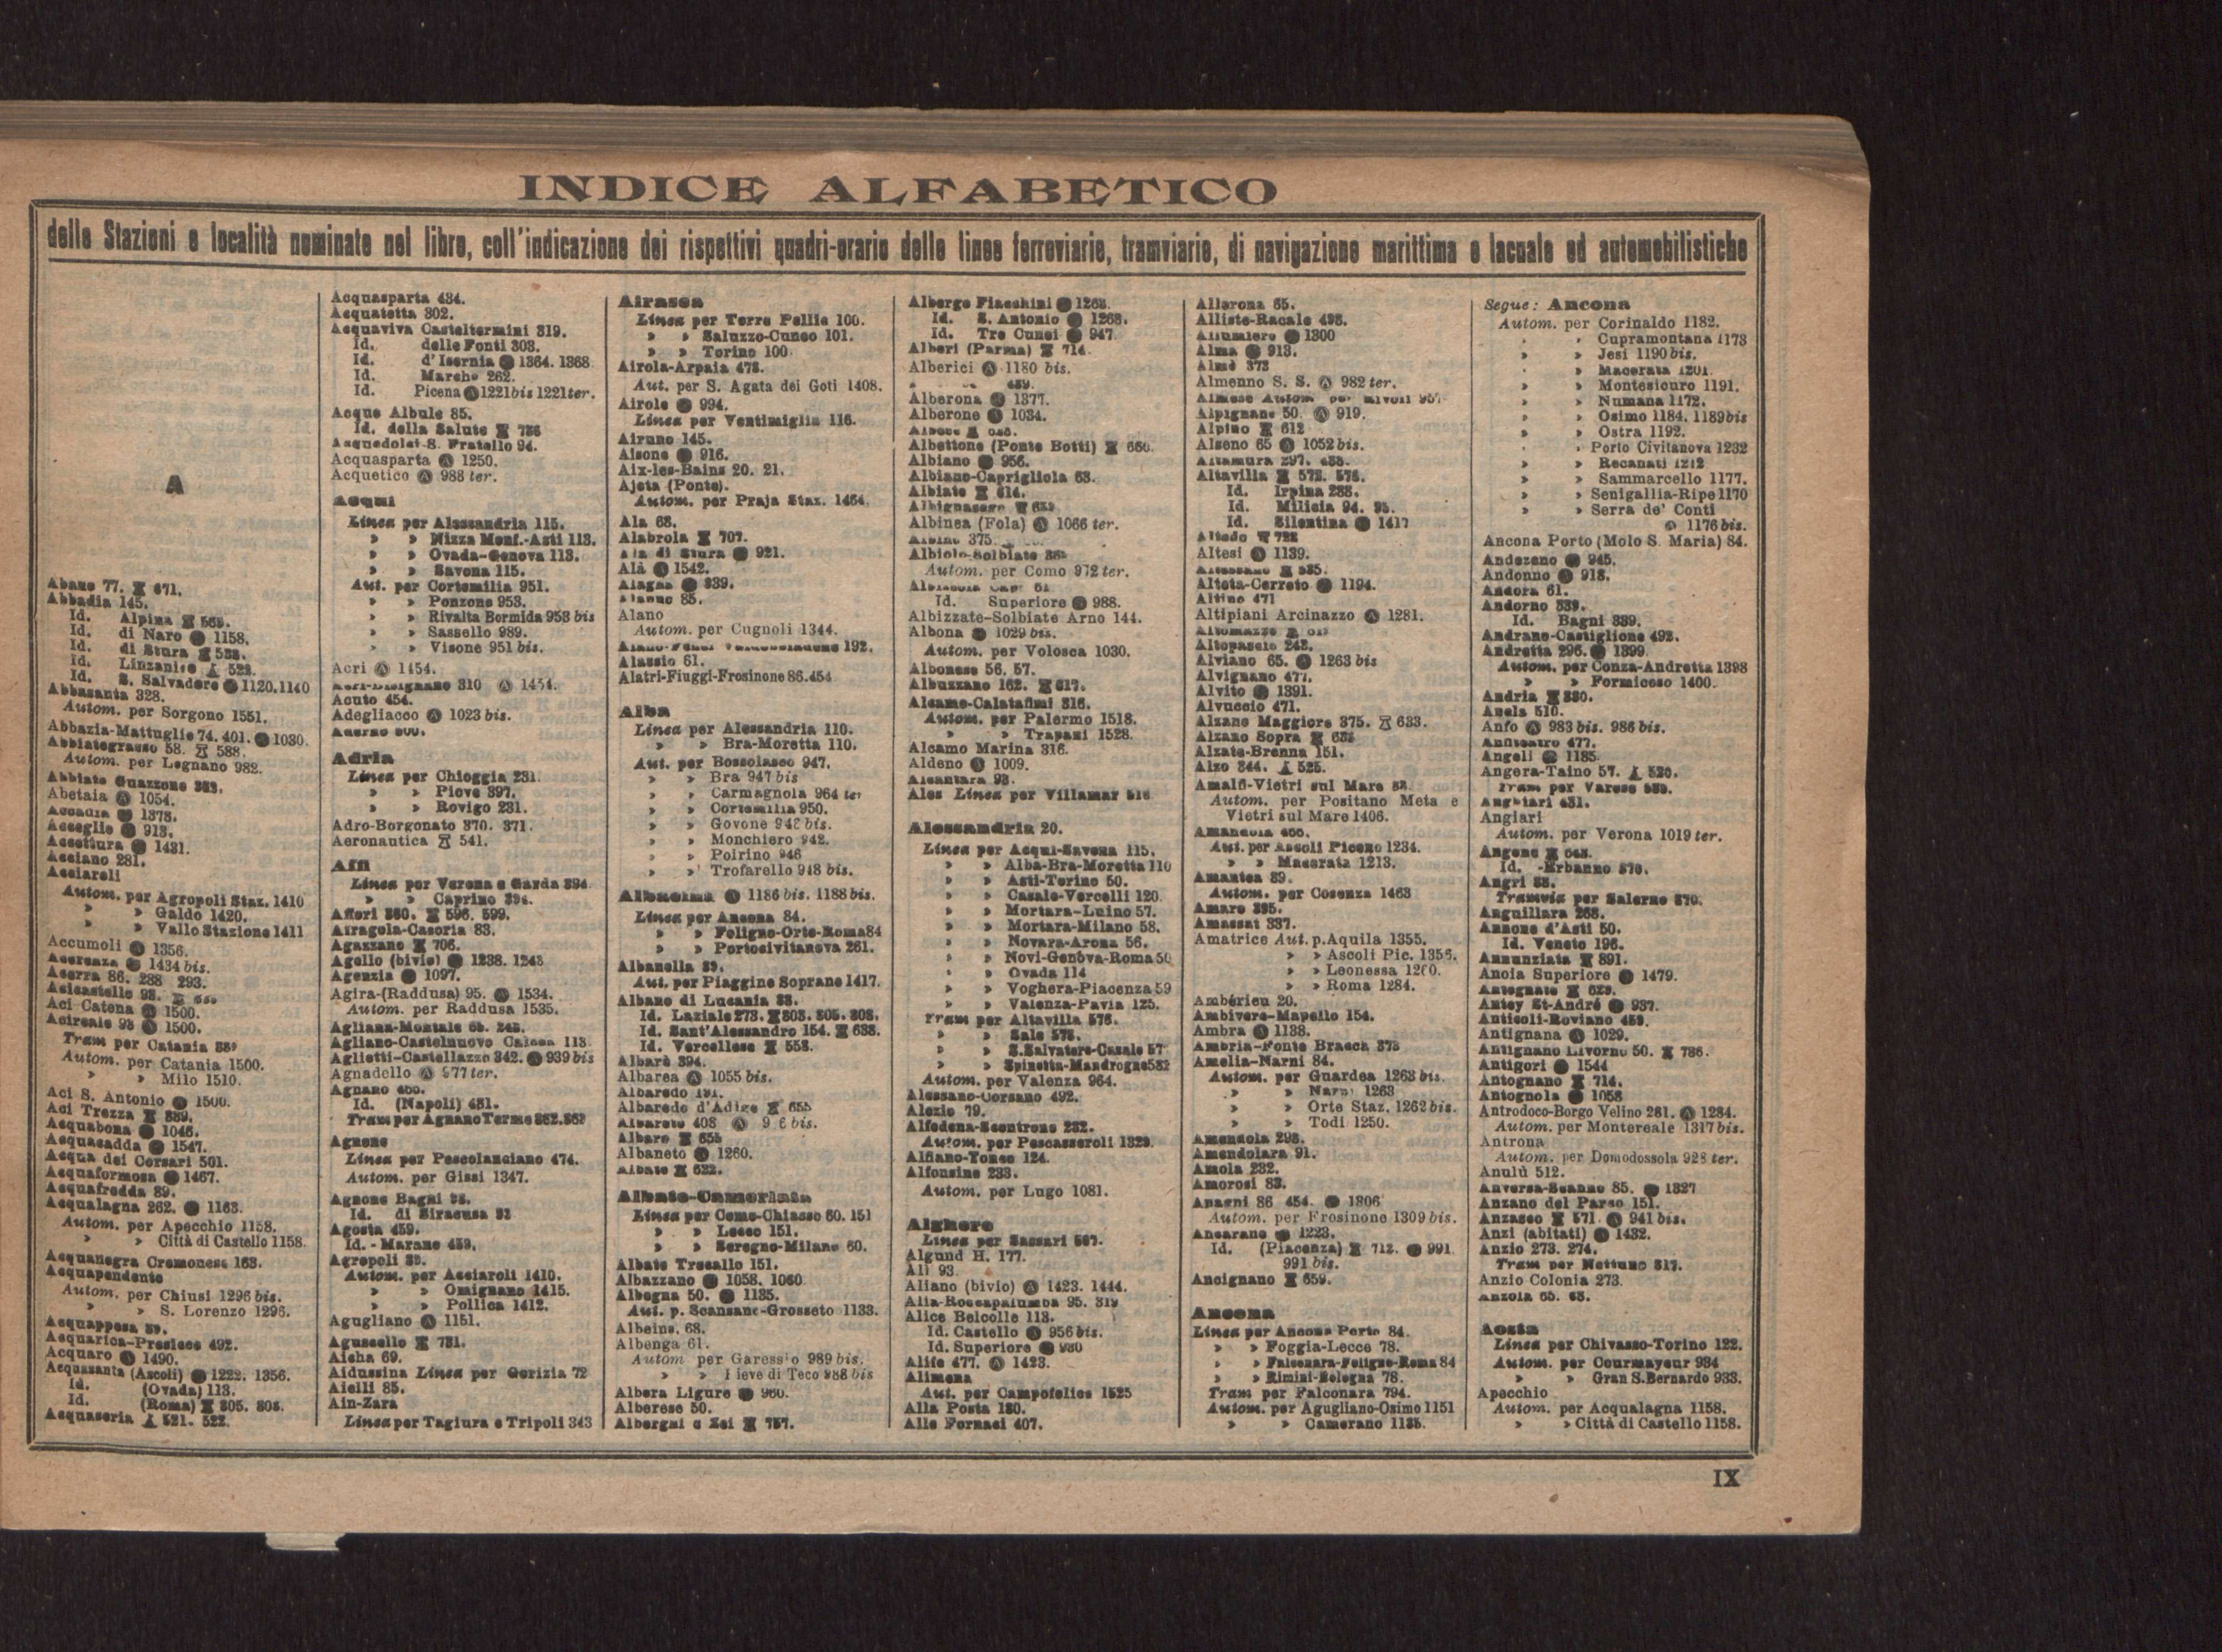 INDICE ALFABETICO
delle Stazioni e località nominate nel libro, coll'indicazione dei rispettivi quadri-orario delle linee ferroviarie, tramviarie, di navigazione marittima e lacuale ed automobilistiche
A
Abano 77. 671.
Abbadia 145.
Id. Alpina
Id. di Naro 1158.
Id. di Stura
Id. Linzanico 522.
Id. S. Salvadore 1120.1140
Abbasanta 328.
Autom. per Sorgono 1551.
Abbazia-Mattuglie 74. 401. 1030.
Abbiategrasso 58. 588.
Autom. per Legnano 982.
Abbiate Guazzone
Abetaia Ⓐ 1054.
Accadia 1378.
Acceglio 913.
Accettura 1431.
Acciano 281.
Acciaroli
Autom. per Agropoli Staz. 1410
» » Galdo 1420.
» » Vallo Stazione 1411
Accumoli 1356.
Acerenza 1434 bis.
Acerra 86. 288 293.
Acicastello 93.
Aci-Catena 1500.
Acireale 93 1500.
Tram per Catania
Autom. per Catania 1500.
» » Milo 1510.
Aci S. Antonio 1500.
Aci Trezza 889.
Acquabona 1046.
Acquacadda 1547.
Acqua dei Corsari 501.
Acquaformosa 1467.
Acquafredda 89.
Acqualagna 262. 1163.
Autom. per Apecchio 1158.
» » Città di Castello 1158.
Acquanegra Cremonese 163.
Acquapendente
Autom. per Chiusi 1296 bis.
» » S. Lorenzo 1296.
Acquappesa
Acquarica-Presicce 492.
Acquaro Ⓐ 1490.
Acquasanta (Ascoli) 1222. 1356.
Id. (Ovada) 113.
Id. (Roma) 805. 808.
Acquaseria 521. 522.
Acquasparta 484.
Acquatetta 302.
Acquaviva Casteltermini 319.
Id. delle Fonti 303.
Id. d'Isernia 1364. 1368
Id. Marche 262.
Id. Picena Ⓐ 1221 bis 1221 ter.
Acque Albule 85.
Id. della Salute
Acquedolci-S. Fratello 94.
Acquasparta Ⓐ 1250.
Acquetico Ⓐ 988 ter.
Acqui
Linea per Alessandria 115.
» » Nizza Monf.-Asti 113.
» » Ovada-Genova 113.
» » Savona 115.
Aut. per Cortemilia 951.
» » Ponzone 953.
» » Rivalta Bormida 953 bis
» » Sassello 989.
» » Visone 951 bis.
Acri Ⓐ 1454.
Acri-Bisignano 310 Ⓐ 1454.
Acuto 454.
Adegliacco Ⓐ 1023 bis.
Adria
Linea per Chioggia 231.
» » Piove 397.
» » Rovigo 231.
Adro-Borgonato 370. 371.
Aeronautica 541.
Affi
Linea per Verona e Garda 394
» » Caprino 394.
Affori 360. 596. 599.
Afragola-Casoria 83.
Agazzano 706.
Agello (bivio) 1238. 1243
Agenzia 1097.
Agira-(Raddusa) 95. Ⓐ 1534.
Autom. per Raddusa 1535.
Agliana-Montale
Agliano-Castelnuovo Calcea 113.
Aglietti-Castellazzo 342. 939 bis
Agnadello Ⓐ 977 ter.
Agnano
Id. (Napoli) 481.
Tram per Agnano Terme
Agnone
Linea per Pescolanciano 474.
Autom. per Gissi 1347.
Agnone Bagni
Id. di Siracusa
Agosta 459.
Id. - Marano 459.
Agropoli
Autom. per Acciaroli 1410.
» » Omignano 1415.
» » Pollica 1412.
Agugliano Ⓐ 1151.
Aguscello 731.
Aicha 69.
Aidussina Linea per Gorizia 72
Aielli 85.
Ain-Zara
Linea per Tagiura e Tripoli 343
Airasca
Linea per Torre Pellie 100.
» » Saluzzo-Cuneo 101.
» » Torino 100
Airola-Arpaia 478.
Aut. per S. Agata dei Goti 1408.
Airole 994.
Linea per Ventimiglia 116.
Airuno 145.
Aisone 916.
Aix-les-Bains 20. 21.
Ajeta (Ponte).
Autom. per Praja Staz. 1464.
Ala 68.
Alabrola 707.
Ala di Stura 921.
Alà Ⓐ 1542.
Alagna 939.
Alanno 85.
Alano
Autom. per Cugnoli 1344.
Alassio 61.
Alatri-Fiuggi-Frosinone 86.454
Alba
Linea per Alessandria 110.
» » Bra-Moretta 110.
Aut. per Bossolasco 947.
» » Bra 947 bis
» » Carmagnola 964 ter
» » Cortemilia 950.
» » Govone 948 bis.
» » Monchiero 942.
» » Poirino 946
» » Trofarello 948 bis.
Albacina Ⓐ 1186 bis. 1188 bis.
Linea per Ancona 84.
» » Foligno-Orte-Roma 84
» » Portocivitanova 261.
Albanella
Aut. per Piaggine Soprane 1417.
Albano di Lucania 88.
Id. Laziale 273. 803. 805. 808.
Id. Sant'Alessandro 154. 638.
Id. Vercellese 558.
Albarè 394.
Albarea Ⓐ 1055 bis.
Albaredo
Albaredo d'Adige 655
Albareto 408 Ⓐ
Albaro 655
Albaneto 1260.
Albate 622.
Albate-Camerlata
Linea per Como-Chiasso 60. 151
» » Lecco 151.
» » Seregno-Milano 60.
Albate Trecallo 151.
Albazzano 1058. 1060
Albegna 50. 1135.
Aut. p. Scansano-Grosseto 1133.
Albeins. 68.
Albenga 61.
Autom per Garessio 989 bis.
» » Pieve di Teco 988 bis
Albera Ligure 960.
Alberese 50.
Albergni e Zei 757.
Albergo Fiacchini 1268.
Id. S. Antonio 1268.
Id. Tre Cunei 947
Alberi (Parma) 714.
Alberici Ⓐ 1180 bis.
Alberona 1377.
Alberone 1034.
Albettone (Ponte Botti) 660.
Albiano 956.
Albiano-Caprigliola 63.
Albiate 614.
Albinea (Fola) Ⓐ 1066 ter.
Albino 375.
Albiolo-Solbiate
Autom. per Como 972 ter.
Id. Superiore 988.
Albizzate-Solbiate Arno 144.
Albona 1029 bis.
Autom. per Volosca 1030.
Albonese 56. 57.
Albuzzano 162. 617.
Alcamo-Calatafimi 316.
Autom. per Palermo 1518.
» » Trapani 1528.
Alcamo Marina 316.
Aldeno Ⓐ 1009.
Alcantara 93.
Ales Linea per Villamar 516
Alessandria 20.
Linea per Acqui-Savona 115.
» » Alba-Bra-Moretta 110
» » Asti-Torino 50.
» » Casale-Vercelli 120.
» » Mortara-Luino 57.
» » Mortara-Milano 58.
» » Novara-Arona 56.
» » Novi-Genova-Roma 50
» » Ovada 114
» » Voghera-Piacenza 59
» » Valenza-Pavia 125.
Tram per Altavilla 576.
» » Sale 578.
» » S.Salvatore-Casale
» » Spinetta-Mandrogne 582
Autom. per Valenza 964.
Alessano-Corsano 492.
Alezio 79.
Alfedena-Scontrone 282.
Autom. per Pescasseroli 1329.
Alfiano-Tonco 124.
Alfonsine 233.
Autom. per Lugo 1081.
Alghero
Linea per Sassari 507.
Algund H. 177.
Alì 93
Aliano (bivio) Ⓐ 1423. 1444.
Alia-Roccapalumba 95. 319
Alice Belcolle 113.
Id. Castello Ⓐ 956 bis.
Id. Superiore 980
Alife 477. Ⓐ 1423.
Alimena
Aut. per Campofelice 1525
Alla Posta 180.
Alle Fornaci 407.
Allerona 65.
Alliste-Racale 493.
Allumiere 1300
Alma 913.
Almè 373
Almenno S. S. Ⓐ 982 ter.
Almese Autom. per Rivoli
Alpignano 50. Ⓐ 919.
Alpino 612
Alseno 65 Ⓐ 1052 bis.
Altamura 297.
Altavilla 572. 576.
Id. Irpina 288.
Id. Milicia 94. 95.
Id. Silentina 1417
Altedo 722
Altesi Ⓐ 1139.
Alteta-Cerreto 1194.
Altino 471
Altipiani Arcinazzo Ⓐ 1281.
Altopascio 242.
Alviano 65. 1263 bis
Alvignano 477.
Alvito 1391.
Alvuccio 471.
Alzano Maggiore 375. 633.
Alzano Sopra
Alzate-Brenna 151.
Alzo 344. 525.
Amalfi-Vietri sul Mare
Autom. per Positano Meta e
Vietri sul Mare 1406.
Amandola
Aut. per Ascoli Piceno 1234.
» » Macerata 1213.
Amantea 89.
Autom. per Cosenza 1463
Amaro 395.
Amassai 337.
Amatrice Aut. p. Aquila 1355.
» » Ascoli Pic. 1356.
» » Leonessa 1260.
» » Roma 1284.
Ambérieu 20.
Ambivere-Mapello 154.
Ambra Ⓐ 1138.
Ambria-Fonte Bracca 373
Amelia-Narni 84.
Autom. per Guardea 1263 bis.
» » Narni 1263
» » Orte Staz. 1262 bis.
» » Todi 1250.
Amendola 298.
Amendolara 91.
Amola 232.
Amorosi 83.
Anagni 86 454. 1306
Autom. per Frosinone 1309 bis.
Ancarano 1223.
Id. (Piacenza) 712. 991
991 bis.
Ancignano 659.
Ancona
Linea per Ancona Porto 84.
» » Foggia-Lecce 78.
» » Falconara-Foligno-Roma 84
» » Rimini-Bologna 78.
Tram per Falconara 794.
Autom. per Agugliano-Osimo 1151
» » Camerano 1185.
Segue: Ancona
Autom. per Corinaldo 1182.
» » Cupramontana 1173
» » Jesi 1190 bis.
» » Macerata 1201
» » Montesicuro 1191.
» » Numana 1172.
» » Osimo 1184. 1189 bis
» » Ostra 1192.
» » Porto Civitanova 1232
» » Recanati 1212
» » Sammarcello 1177.
» » Senigallia-Ripe 1170
» » Serra de' Conti
Ⓐ 1176 bis.
Ancona Porto (Molo S. Maria) 84.
Andezeno 945.
Andonno 918.
Andora 61.
Andorno 339.
Id. Bagni 339.
Andrano-Castiglione 492.
Andretta 296. 1399
Autom. per Conza-Andretta 1398
» » Formicoso 1400.
Andria 880.
Anela 510.
Anfo Ⓐ 983 bis. 986 bis.
Anfiteatro 477.
Angeli 1185
Angera-Taino 57. 520.
Tram per Varese
Anghiari 431.
Angiari
Autom. per Verona 1019 ter.
Angone
Id. -Erbanno
Angri 88.
Tramvia per Salerno 870.
Anguillara 268.
Annone d'Asti 50.
Id. Veneto 196.
Annunziata 891.
Anoia Superiore 1479.
Antegnate 629.
Antey St-André 937.
Anticoli-Roviano 459.
Antignana Ⓐ 1029.
Antignano Livorno 50. 786.
Antigori 1544
Antognano 714.
Antognola 1058
Antrodoco-Borgo Velino 281. Ⓐ 1284.
Autom. per Montereale 1317 bis.
Antrona
Autom. per Domodossola 928 ter.
Anulù 512.
Anversa-Scanno 85. 1327
Anzano del Parco 151.
Anzasco 571. Ⓐ 941 bis.
Anzi (abitati) Ⓐ 1432.
Anzio 273. 274.
Tram per Nettuno 817.
Anzio Colonia 273.
Anzola 65. 68.
Aosta
Linea per Chivasso-Torino 122.
Autom. per Courmayeur 934
» » Gran S.Bernardo 933.
Apecchio
Autom. per Acqualagna 1158.
» » Città di Castello 1158.
IX